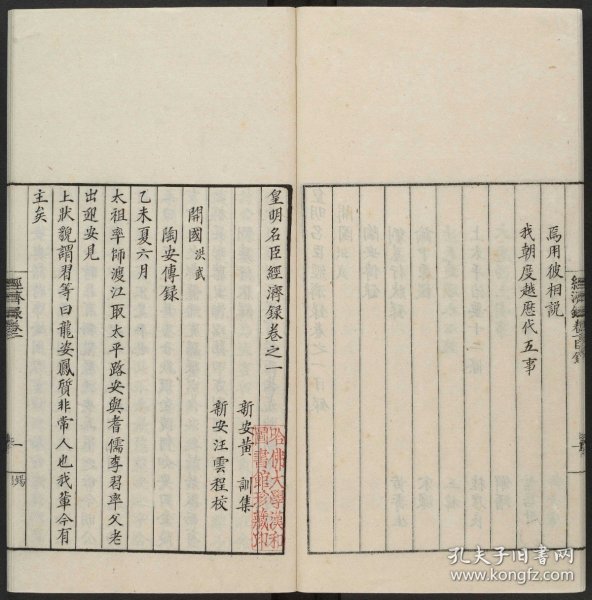 爲用彼相說
我朝度越歷代五事
皇明名臣經濟錄卷之一
新安黃 訓集
新安汪雲程校
開國 洪武
陶安傳錄
乙未夏六月
太祖率師渡江取太平路安與耆儒李習率父老
出迎安見
上狀貌謂習等曰龍姿鳳質非常人也我輩今有
主矣
經濟錄卷一
哈佛大學漢和
圖書館珍藏印
孔夫子旧书网
www.kongfz.com